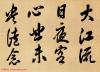 大江流
日夜客
心悲未
央徒念